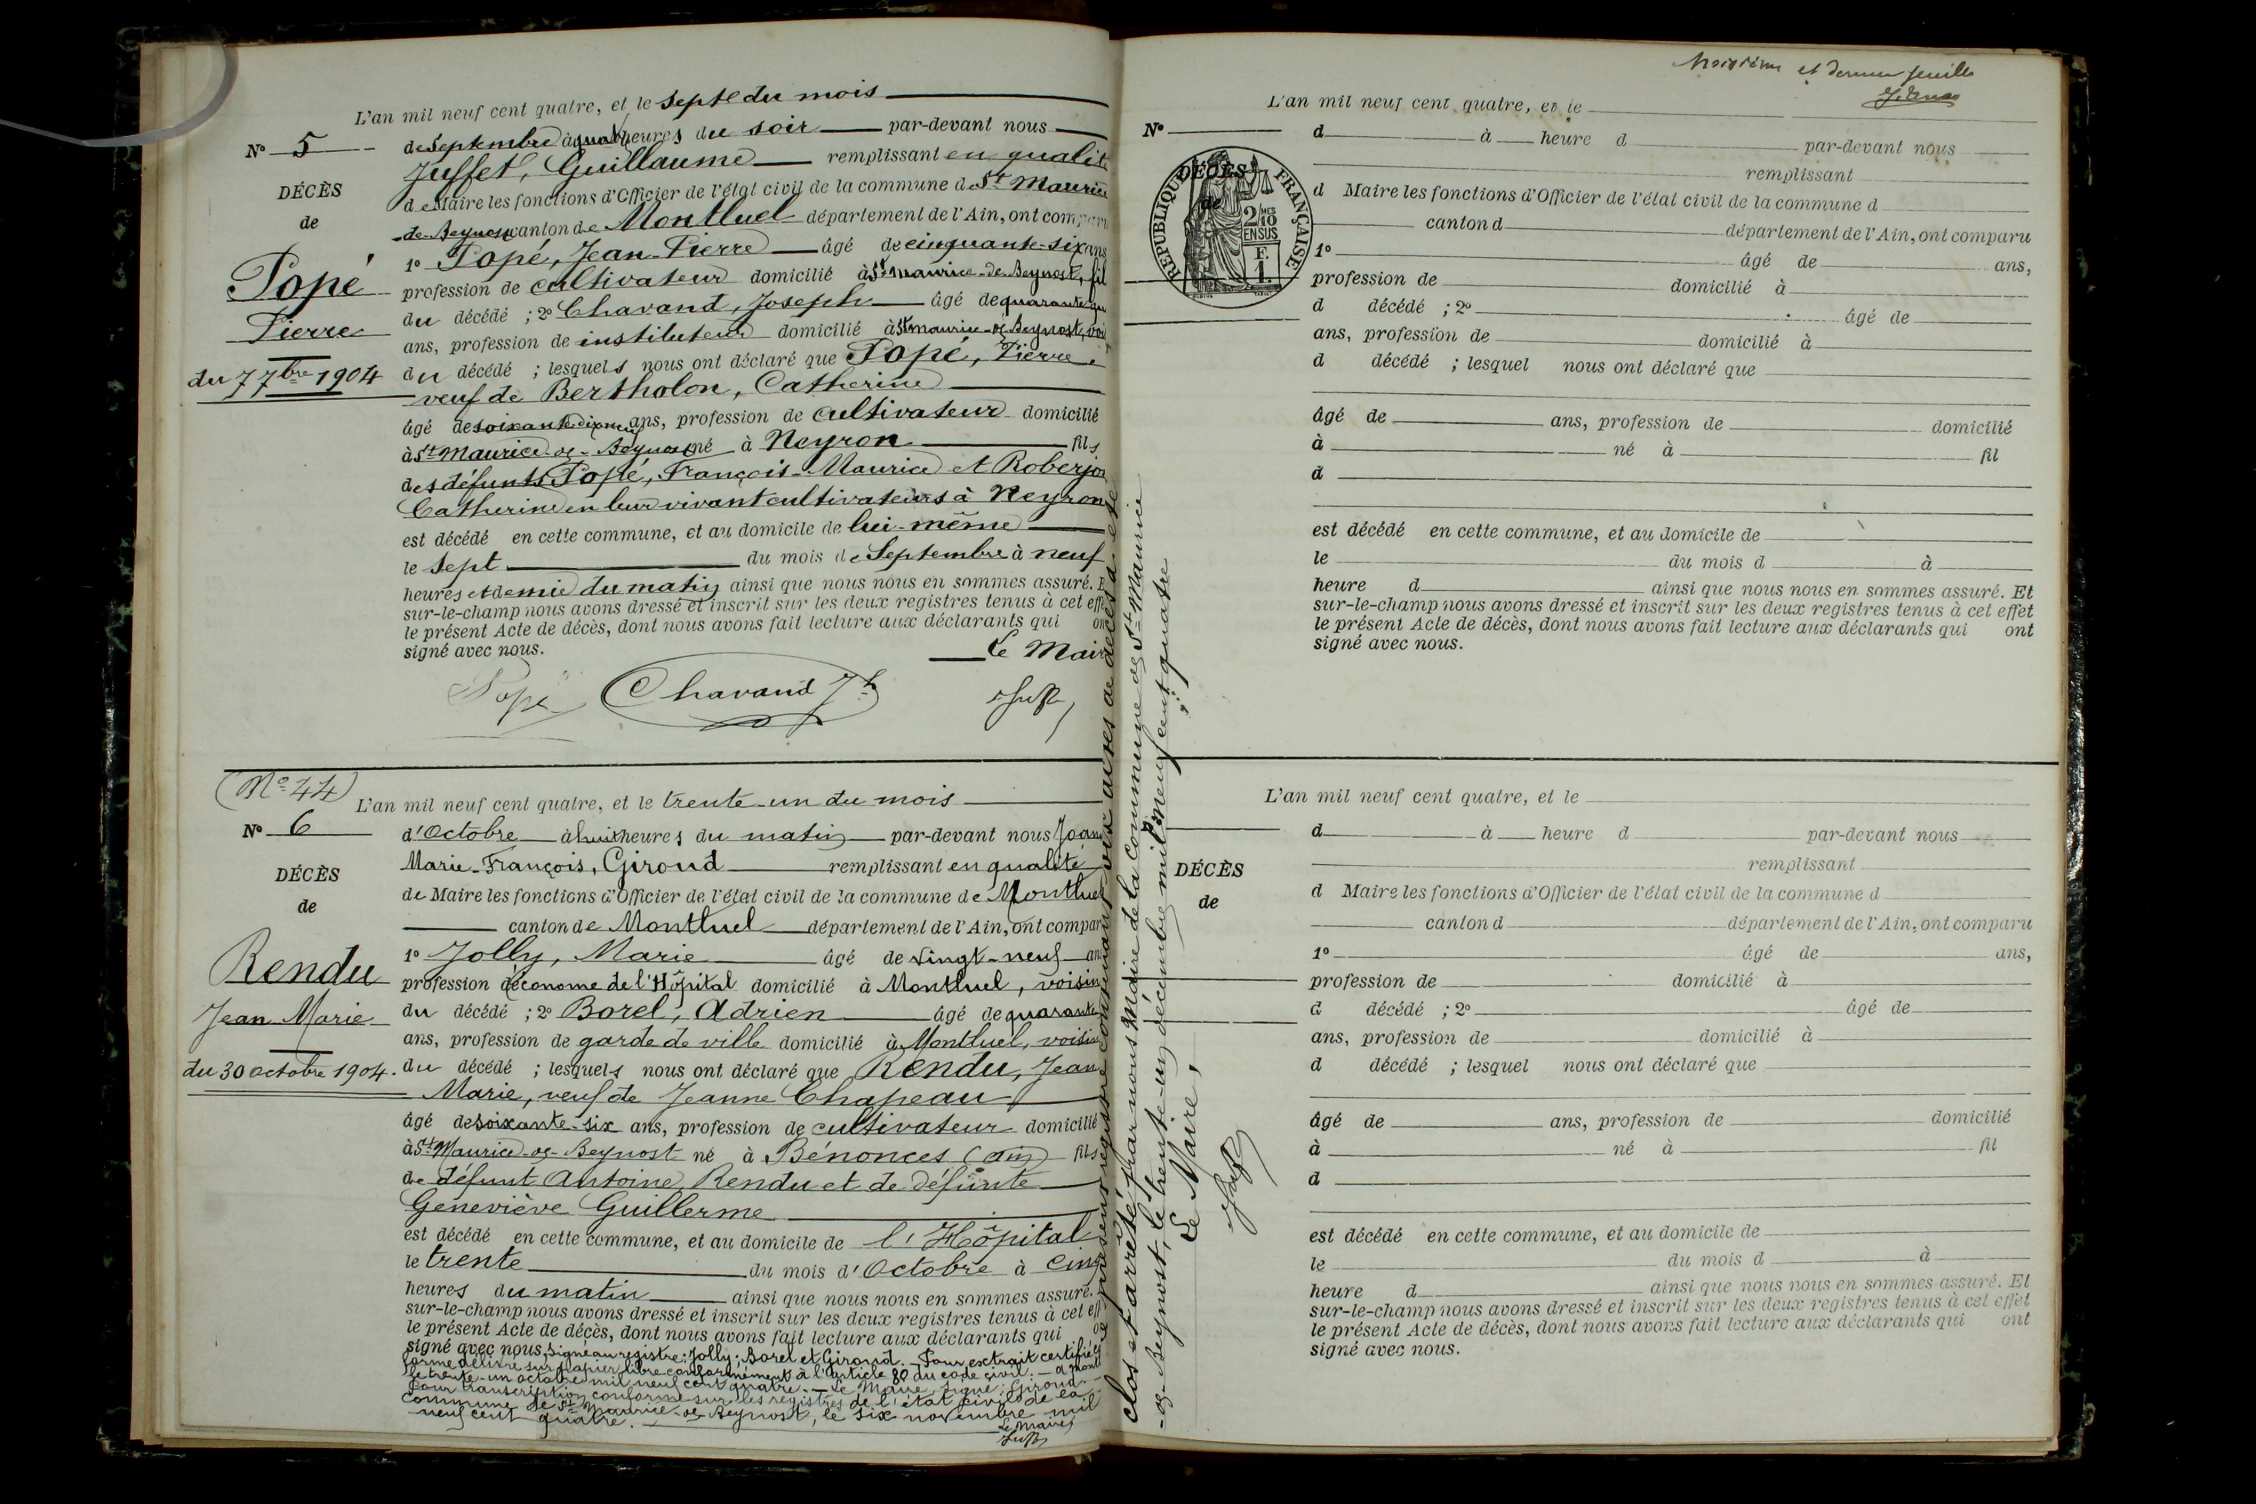 L'an mil neuf cent quatre, et le sept du mois
N° 5
de Septembre à quatre heures du soir par-devant nous
Juffet, Guillaume remplissant en qualité
DÉCÈS
de Maire les fonctions d'Officier de l'état civil de la commune de St Maurice
de
de-Beynost canton de Montluel département de l'Ain, ont comparu
1° Popé, Jean-Pierre âgé de cinquante-six ans
Popé
profession de cultivateur domicilié à St Maurice-de-Beynost, fils
Pierre
du décédé ; 2° Chavand, Joseph âgé de quarante
ans, profession de instituteur domicilié à St Maurice-de-Beynost, voisin
du 7 7bre 1904
du décédé ; lesquels nous ont déclaré que Popé, Pierre
veuf de Bertholon, Catherine
âgé de soixante dix neuf ans, profession de cultivateur domicilié
à St Maurice-de-Beynost né à Neyron fils
des défunts Popé, François-Maurice et Roberjon
Catherine en leur vivant cultivateurs à Neyron
est décédé en cette commune, et au domicile de lui-même
le sept du mois de Septembre à neuf
heures et demie du matin ainsi que nous nous en sommes assuré. E
sur-le-champ nous avons dressé et inscrit sur les deux registres tenus à cet effe
le présent Acte de décès, dont nous avons fait lecture aux déclarants qui on
signé avec nous.
Le Maire
Popé Chavand Jh Juffet
(N° 44)
L'an mil neuf cent quatre, et le trente-un du mois
N° 6
d'Octobre à huit heures du matin par-devant nous Joan
Marie-François, Giroud remplissant en qualité
DÉCÈS
de Maire les fonctions d'Officier de l'état civil de la commune de Montluel
de
canton de Montluel département de l'Ain, ont compar
1° Jolly, Marie âgé de vingt-neuf an
Rendu
profession d'économe de l'Hôpital domicilié à Montluel, voisin
Jean Marie
du décédé ; 2° Borel, Adrien âgé de quarante
ans, profession de garde de ville domicilié à Montluel, voisin
du 30 octobre 1904.
du décédé ; lesquels nous ont déclaré que Rendu, Jean
Marie, veuf de Jeanne Chapeau
âgé de soixante-six ans, profession de cultivateur domicilié
à St Maurice-de-Beynost né à Bénonces (Ain) fils
de défunt Antoine Rendu et de défunte
Geneviève Guillerme
est décédé en cette commune, et au domicile de l'Hôpital
le trente du mois d'Octobre à cinq
heures du matin ainsi que nous nous en sommes assuré.
sur-le-champ nous avons dressé et inscrit sur les deux registres tenus à cet eff
le présent Acte de décès, dont nous avons fait lecture aux déclarants qui o
signé avec nous. Signé au registre : Jolly; Borel et Giroud. - Pour extrait certifié
forme délivré sur papier libre conformément à l'article 80 du code civil. - A Mont
le trente-un octobre mil neuf cent quatre. - Le Maire, signé : Giroud
Pour transcription conforme sur les registres de l'état civil de la
commune de St Maurice-de-Beynost, le six novembre mil
neuf cent quatre.
Le Maire,
Juffet
clos et arrêté par nous Maire de la Commune de St Maurice
-de-Beynost, le trente-un décembre mil neuf cent quatre
Le Maire,
Juffet
et dernier feuille
L'an mil neuf cent quatre, et le
N°
d à heure d par-devant nous
remplissant
DÉCÈS
de
RÉPUBLIQUE FRANÇAISE
2/10 EN SUS
F. 1.
d Maire les fonctions d'Officier de l'état civil de la commune d
canton d département de l'Ain, ont comparu
1° âgé de ans,
profession de domicilié à
d décédé ; 2° âgé de
ans, profession de domicilié à
d décédé ; lesquel nous ont déclaré que
âgé de ans, profession de domicilié
à né à fil
d
est décédé en cette commune, et au domicile de
le du mois d à
heure d ainsi que nous nous en sommes assuré. Et
sur-le-champ nous avons dressé et inscrit sur les deux registres tenus à cet effet
le présent Acte de décès, dont nous avons fait lecture aux déclarants qui ont
signé avec nous.
L'an mil neuf cent quatre, et le
d à heure d par-devant nous
remplissant
DÉCÈS
de
d Maire les fonctions d'Officier de l'état civil de la commune d
canton d département de l'Ain, ont comparu
1° âgé de ans,
profession de domicilié à
d décédé ; 2° âgé de
ans, profession de domicilié à
d décédé ; lesquel nous ont déclaré que
âgé de ans, profession de domicilié
à né à fil
d
est décédé en cette commune, et au domicile de
le du mois d à
heure d ainsi que nous nous en sommes assuré. Et
sur-le-champ nous avons dressé et inscrit sur les deux registres tenus à cet effet
le présent Acte de décès, dont nous avons fait lecture aux déclarants qui ont
signé avec nous.